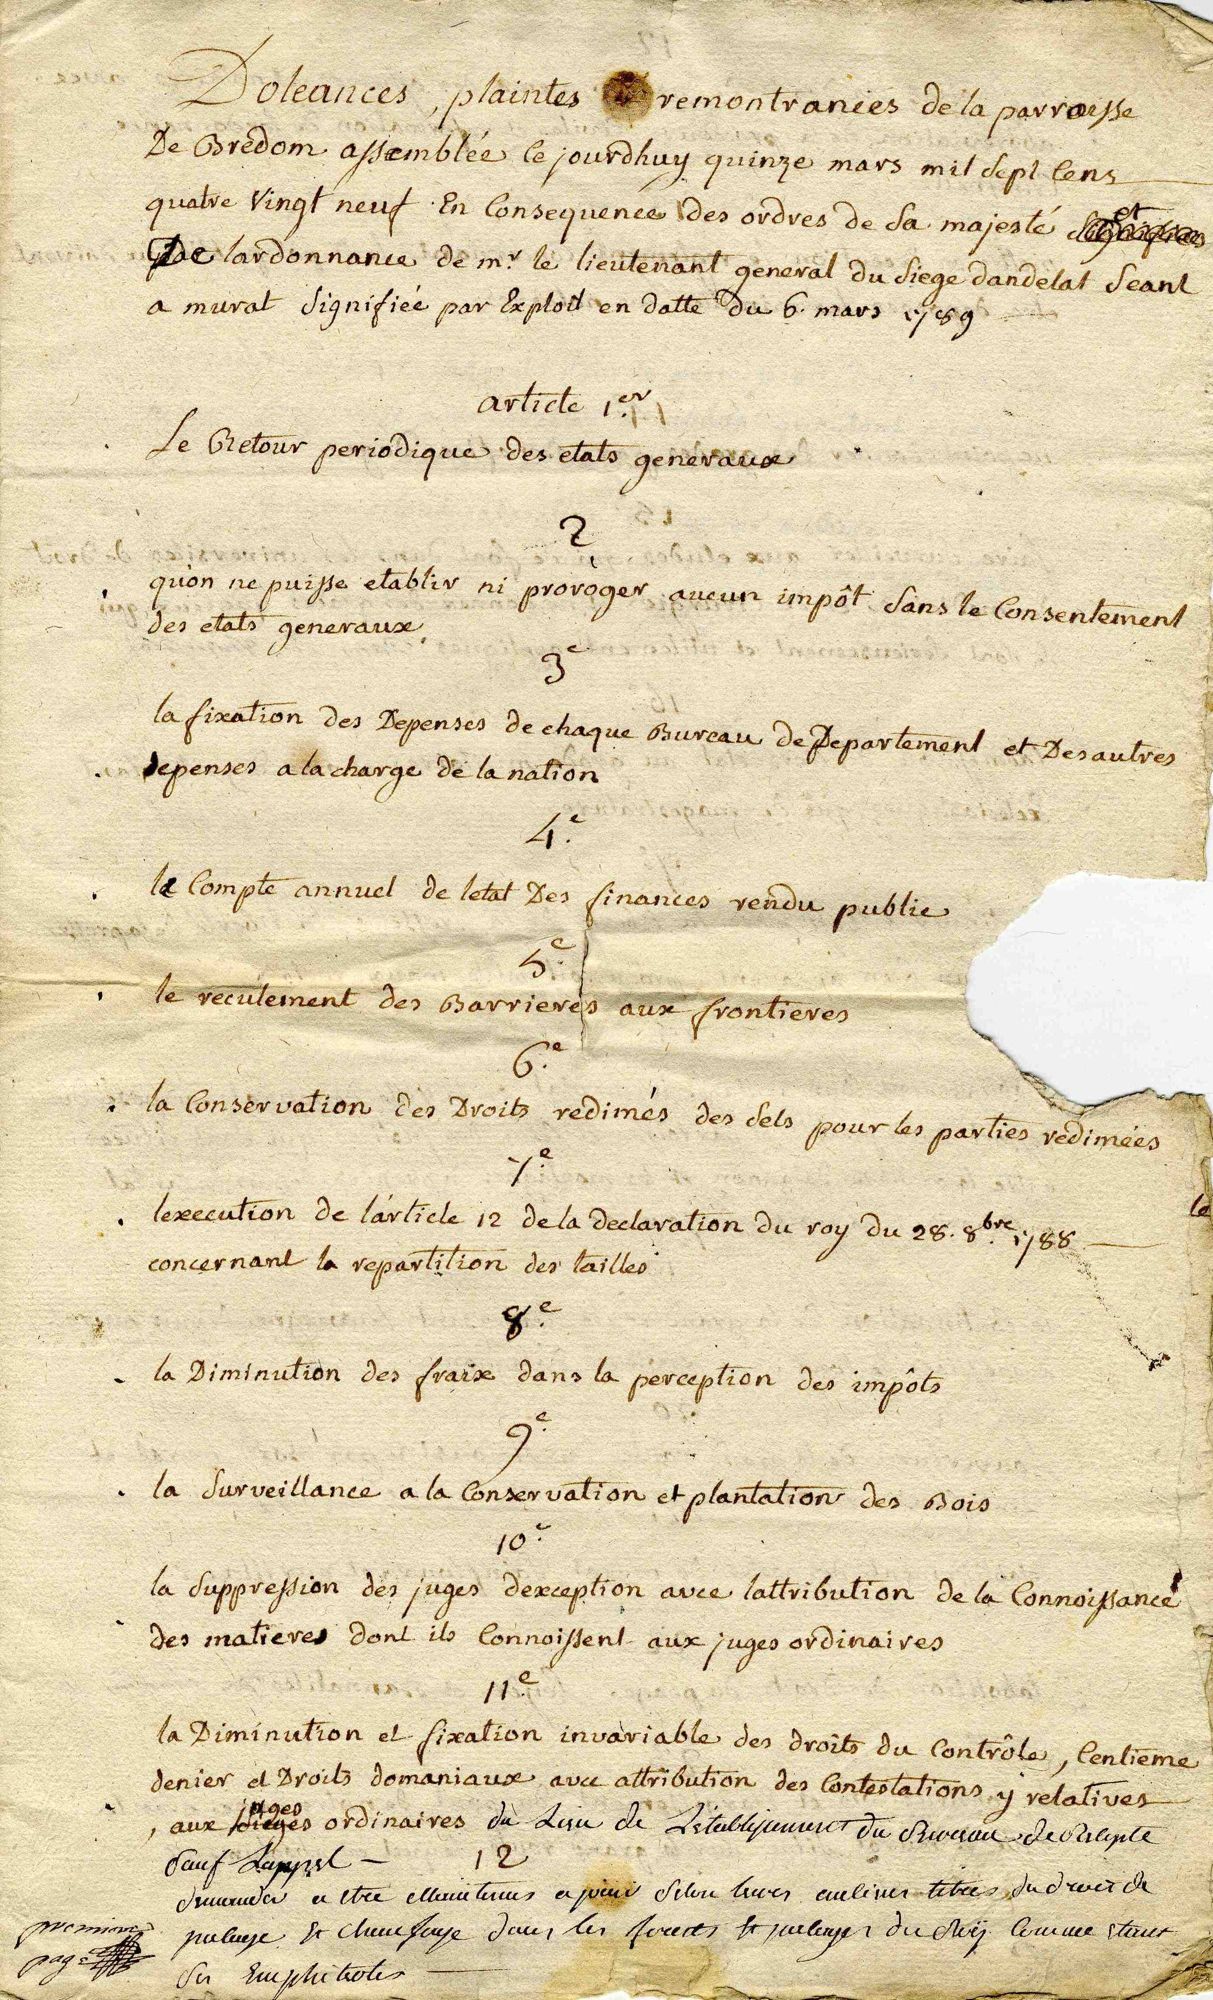 Doleances, plaintes remontrances de la parroisse
De Bredom assemblée ce jourdhuy quinze mars mil sept Cens
quatre Vingt neuf En Consequence des ordres de sa majesté et
De lardonnance de mr. le lieutenant general du siege dandelat seant
a murat signifiée par Exploit en datte du 6. mars 1789
article 1.er
Le Retour periodique des etats generaux
2
qu'on ne puisse etablir ni proroger aucun impôt sans le Consentement
des etats generaux
3e
la fixation des Depenses de chaque Bureau de Departement et Des autres
depenses a la charge de la nation
4e.
le Compte annuel de letat Des finances rendu public
5e.
le reculement des Barrieres aux frontieres
6e.
la Conservation des Droits redimés des sels pour les parties redimées
7e.
lexecution de l'article 12 de la declaration du roy du 28. 8bre. 1788
le
concernant la repartition des tailles
8e.
la Diminution des fraix dans la perception des impôts
9e.
la surveillance a la Conservation et plantation des Bois
10e.
la suppression des juges dexception avec lattribution de la Connoissance
des matieres dont ils Connoissent aux juges ordinaires
11e.
la Diminution et fixation invariable des droits du Contrôle, Centieme
denier et Droits domaniaux avec attribution des Contestations y relatives
, aux juges ordinaires du Lieu de L'etablissement du Bureau de Recepte
sauf Lappel
12
demander a etre Maintenus a jouir selon leurs titres du droit de
pacage Et chauffage dans les forets Et pacages du Roy Comme etant
ses Emphiteotes
premiere
page